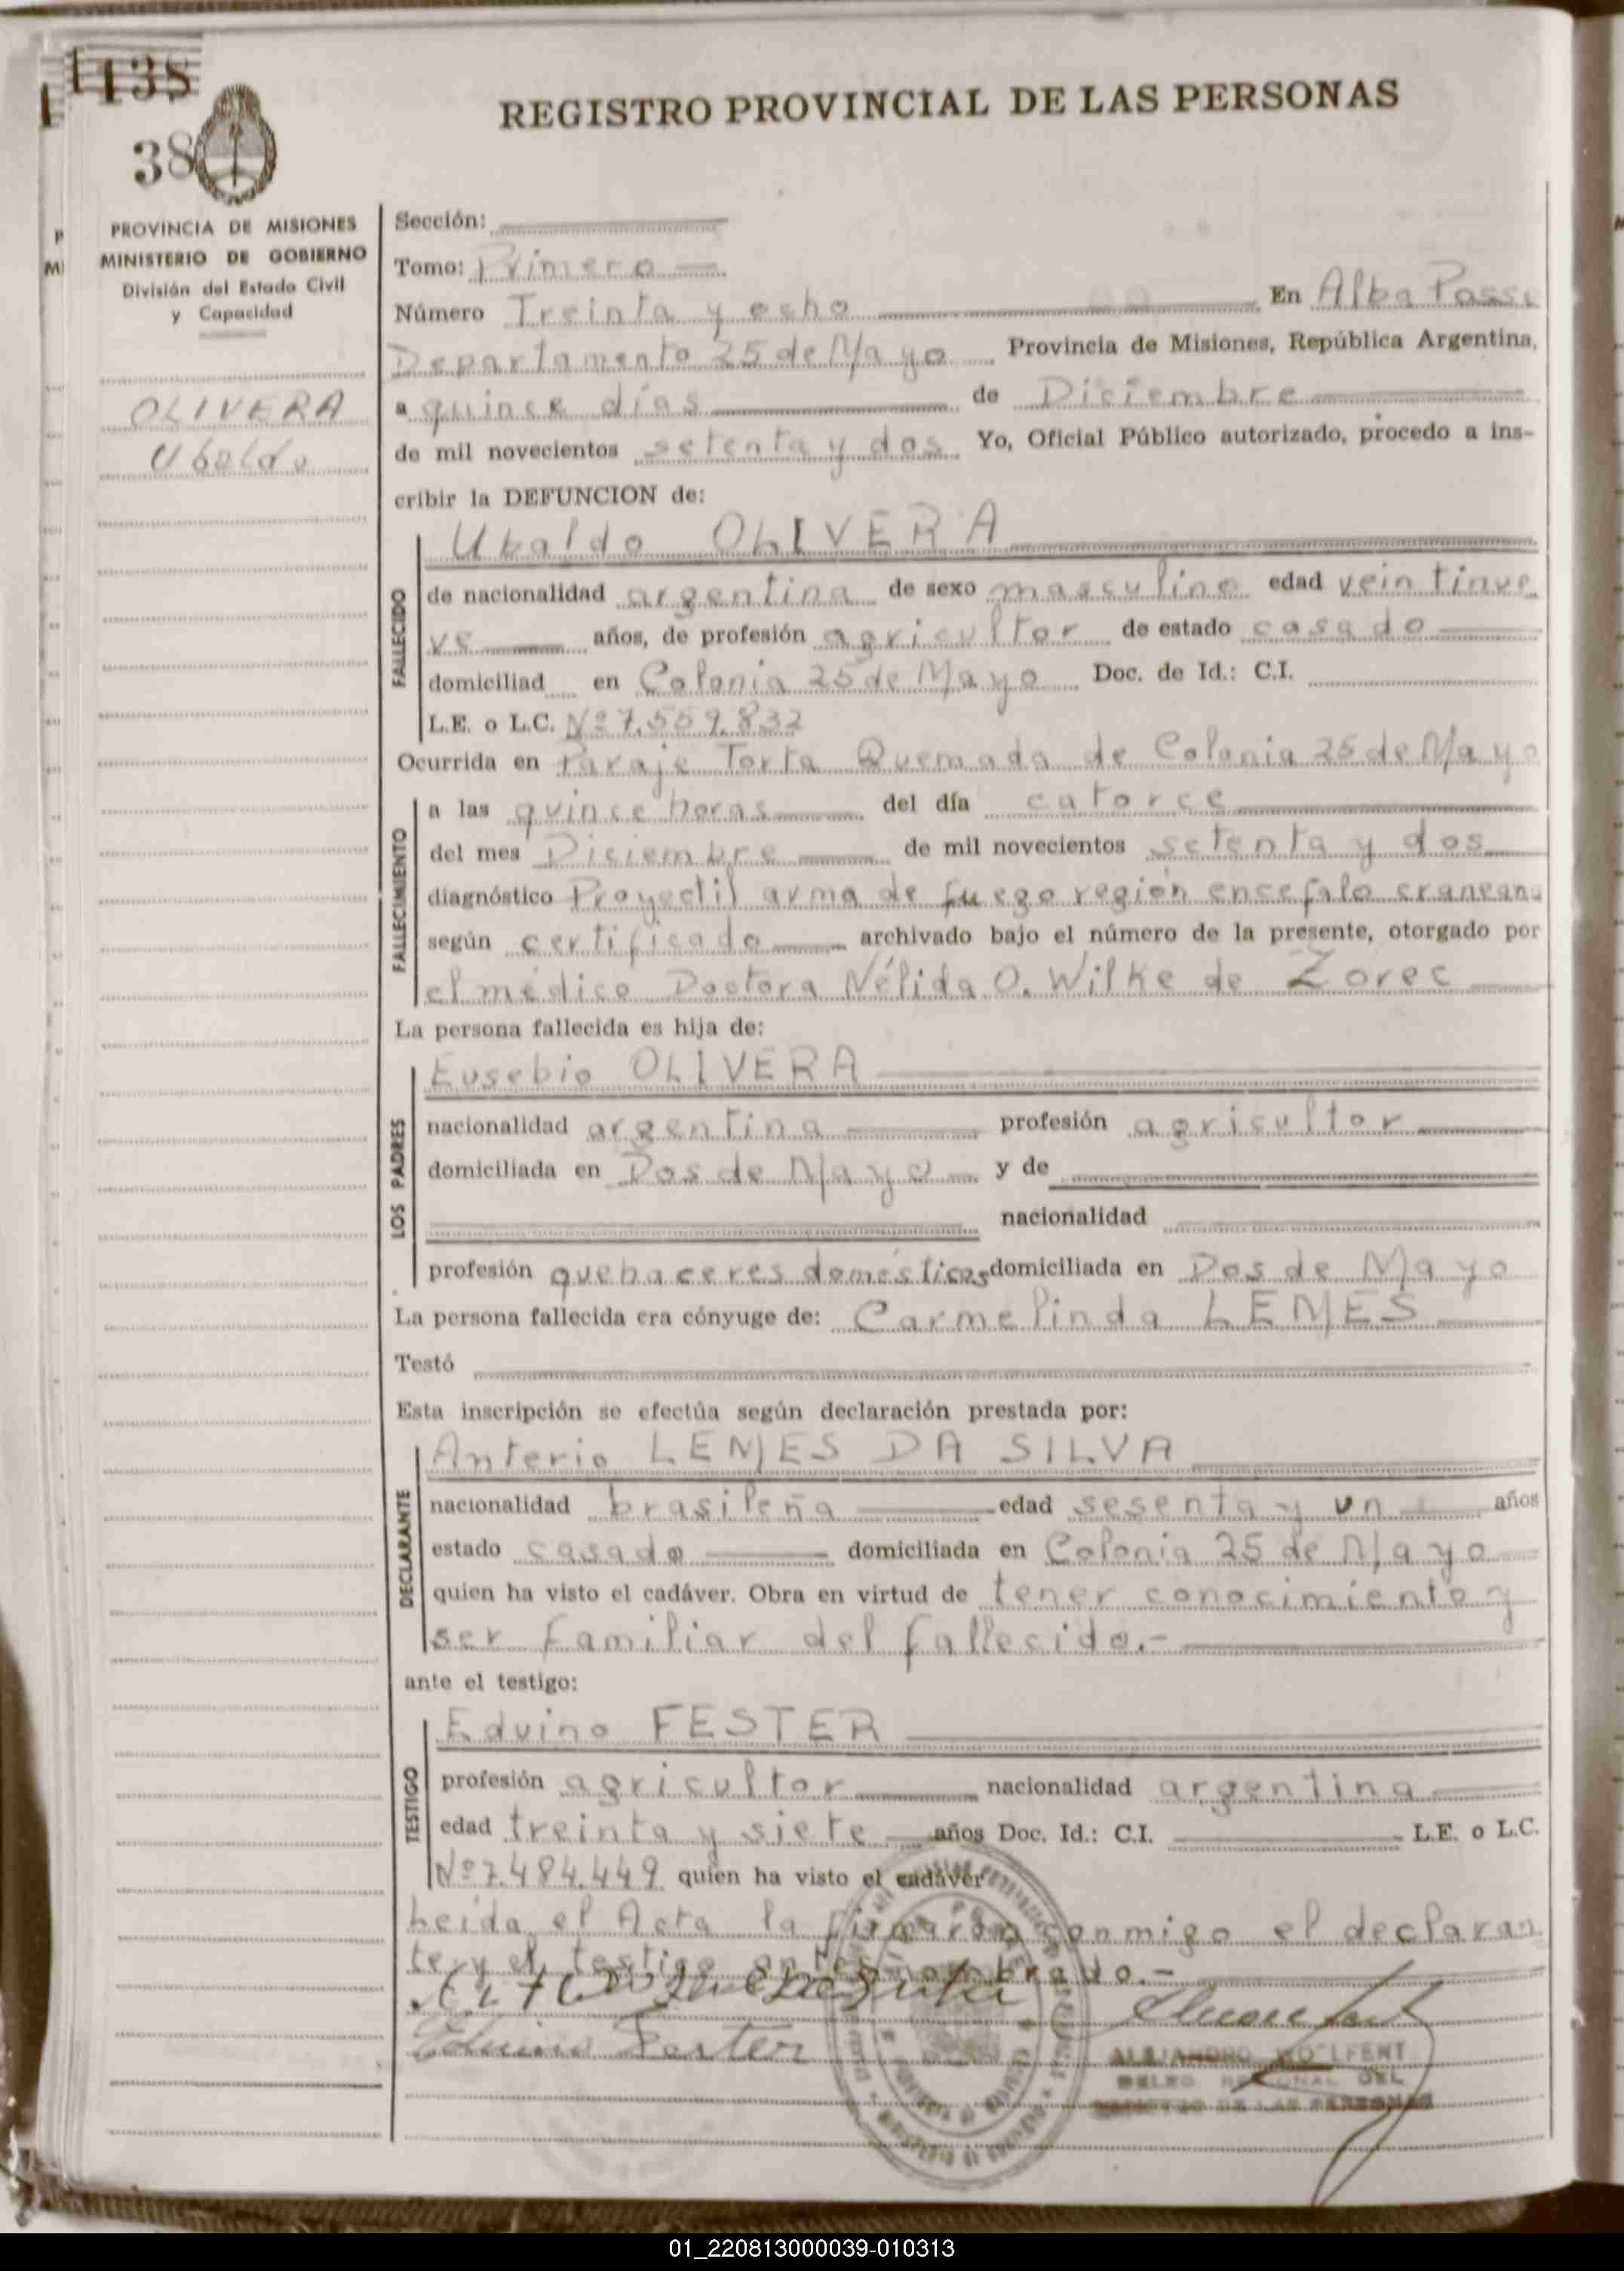 1438
38
REGISTRO PROVINCIAL DE LAS PERSONAS
PROVINCIA DE MISIONES
MINISTERIO DE GOBIERNO
División del Estado Civil
y Capacidad
OLIVERA
Ubaldo
Sección:
Tomo: Primero
Número Treinta y ocho En Alba Posse
Departamento 25 de Mayo Provincia de Misiones, República Argentina,
a quince días de Diciembre
de mil novecientos setenta y dos Yo, Oficial Público autorizado, procedo a ins-
cribir la DEFUNCION de:
FALLECIDO
Ubaldo OLIVERA
de nacionalidad argentina de sexo masculino edad veintinue
ve años, de profesión agricultor de estado casado
domiciliad en Colonia 25 de Mayo Doc. de Id.: C.I.
L.E. o L.C. Nº 7.559.832
Ocurrida en Paraje Torta Quemada de Colonia 25 de Mayo
FALLECIMIENTO
a las quince horas del día catorce
del mes Diciembre de mil novecientos setenta y dos
diagnóstico Proyectil arma de fuego región encefalo craneana
según certificado archivado bajo el número de la presente, otorgado por
el médico Doctora Nélida O. Wilke de Zorec
La persona fallecida es hija de:
LOS PADRES
Eusebio OLIVERA
nacionalidad argentina profesión agricultor
domiciliada en Dos de Mayo y de
nacionalidad
profesión quehaceres domésticos domiciliada en Dos de Mayo
La persona fallecida era cónyuge de: Carmelinda LEMES
Testó
Esta inscripción se efectúa según declaración prestada por:
DECLARANTE
Anterio LEMES DA SILVA
nacionalidad brasileña edad sesenta y un años
estado casado domiciliada en Colonia 25 de Mayo
quien ha visto el cadáver. Obra en virtud de tener conocimiento y
ser familiar del fallecido.-
ante el testigo:
TESTIGO
Eduino FESTER
profesión agricultor nacionalidad argentina
edad treinta y siete años Doc. Id.: C.I. L.E. o L.C.
Nº 7.484.449 quien ha visto el cadáver
Leída el Acta la firmaron conmigo el declaran
te y el testigo antes nombrado.-
Eduino Fester
ALEJANDRO WOLFENT
DELEG. REGIONAL DEL
REGISTRO DE LAS PERSONAS
01_220813000039-010313